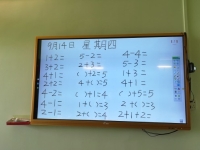 9月14日 星期四
1+2= 5-2= 4-4=
3+2= 2+3= 5-3=
4+1= ( )+2=5 1+3=
2+2= 4+( )=5 4+1=
4-2= ( )+1=4 ( )+5=5
4-1= 1+( )=3 2+( )=3
2-1= 2+( )=4 2+1+2=